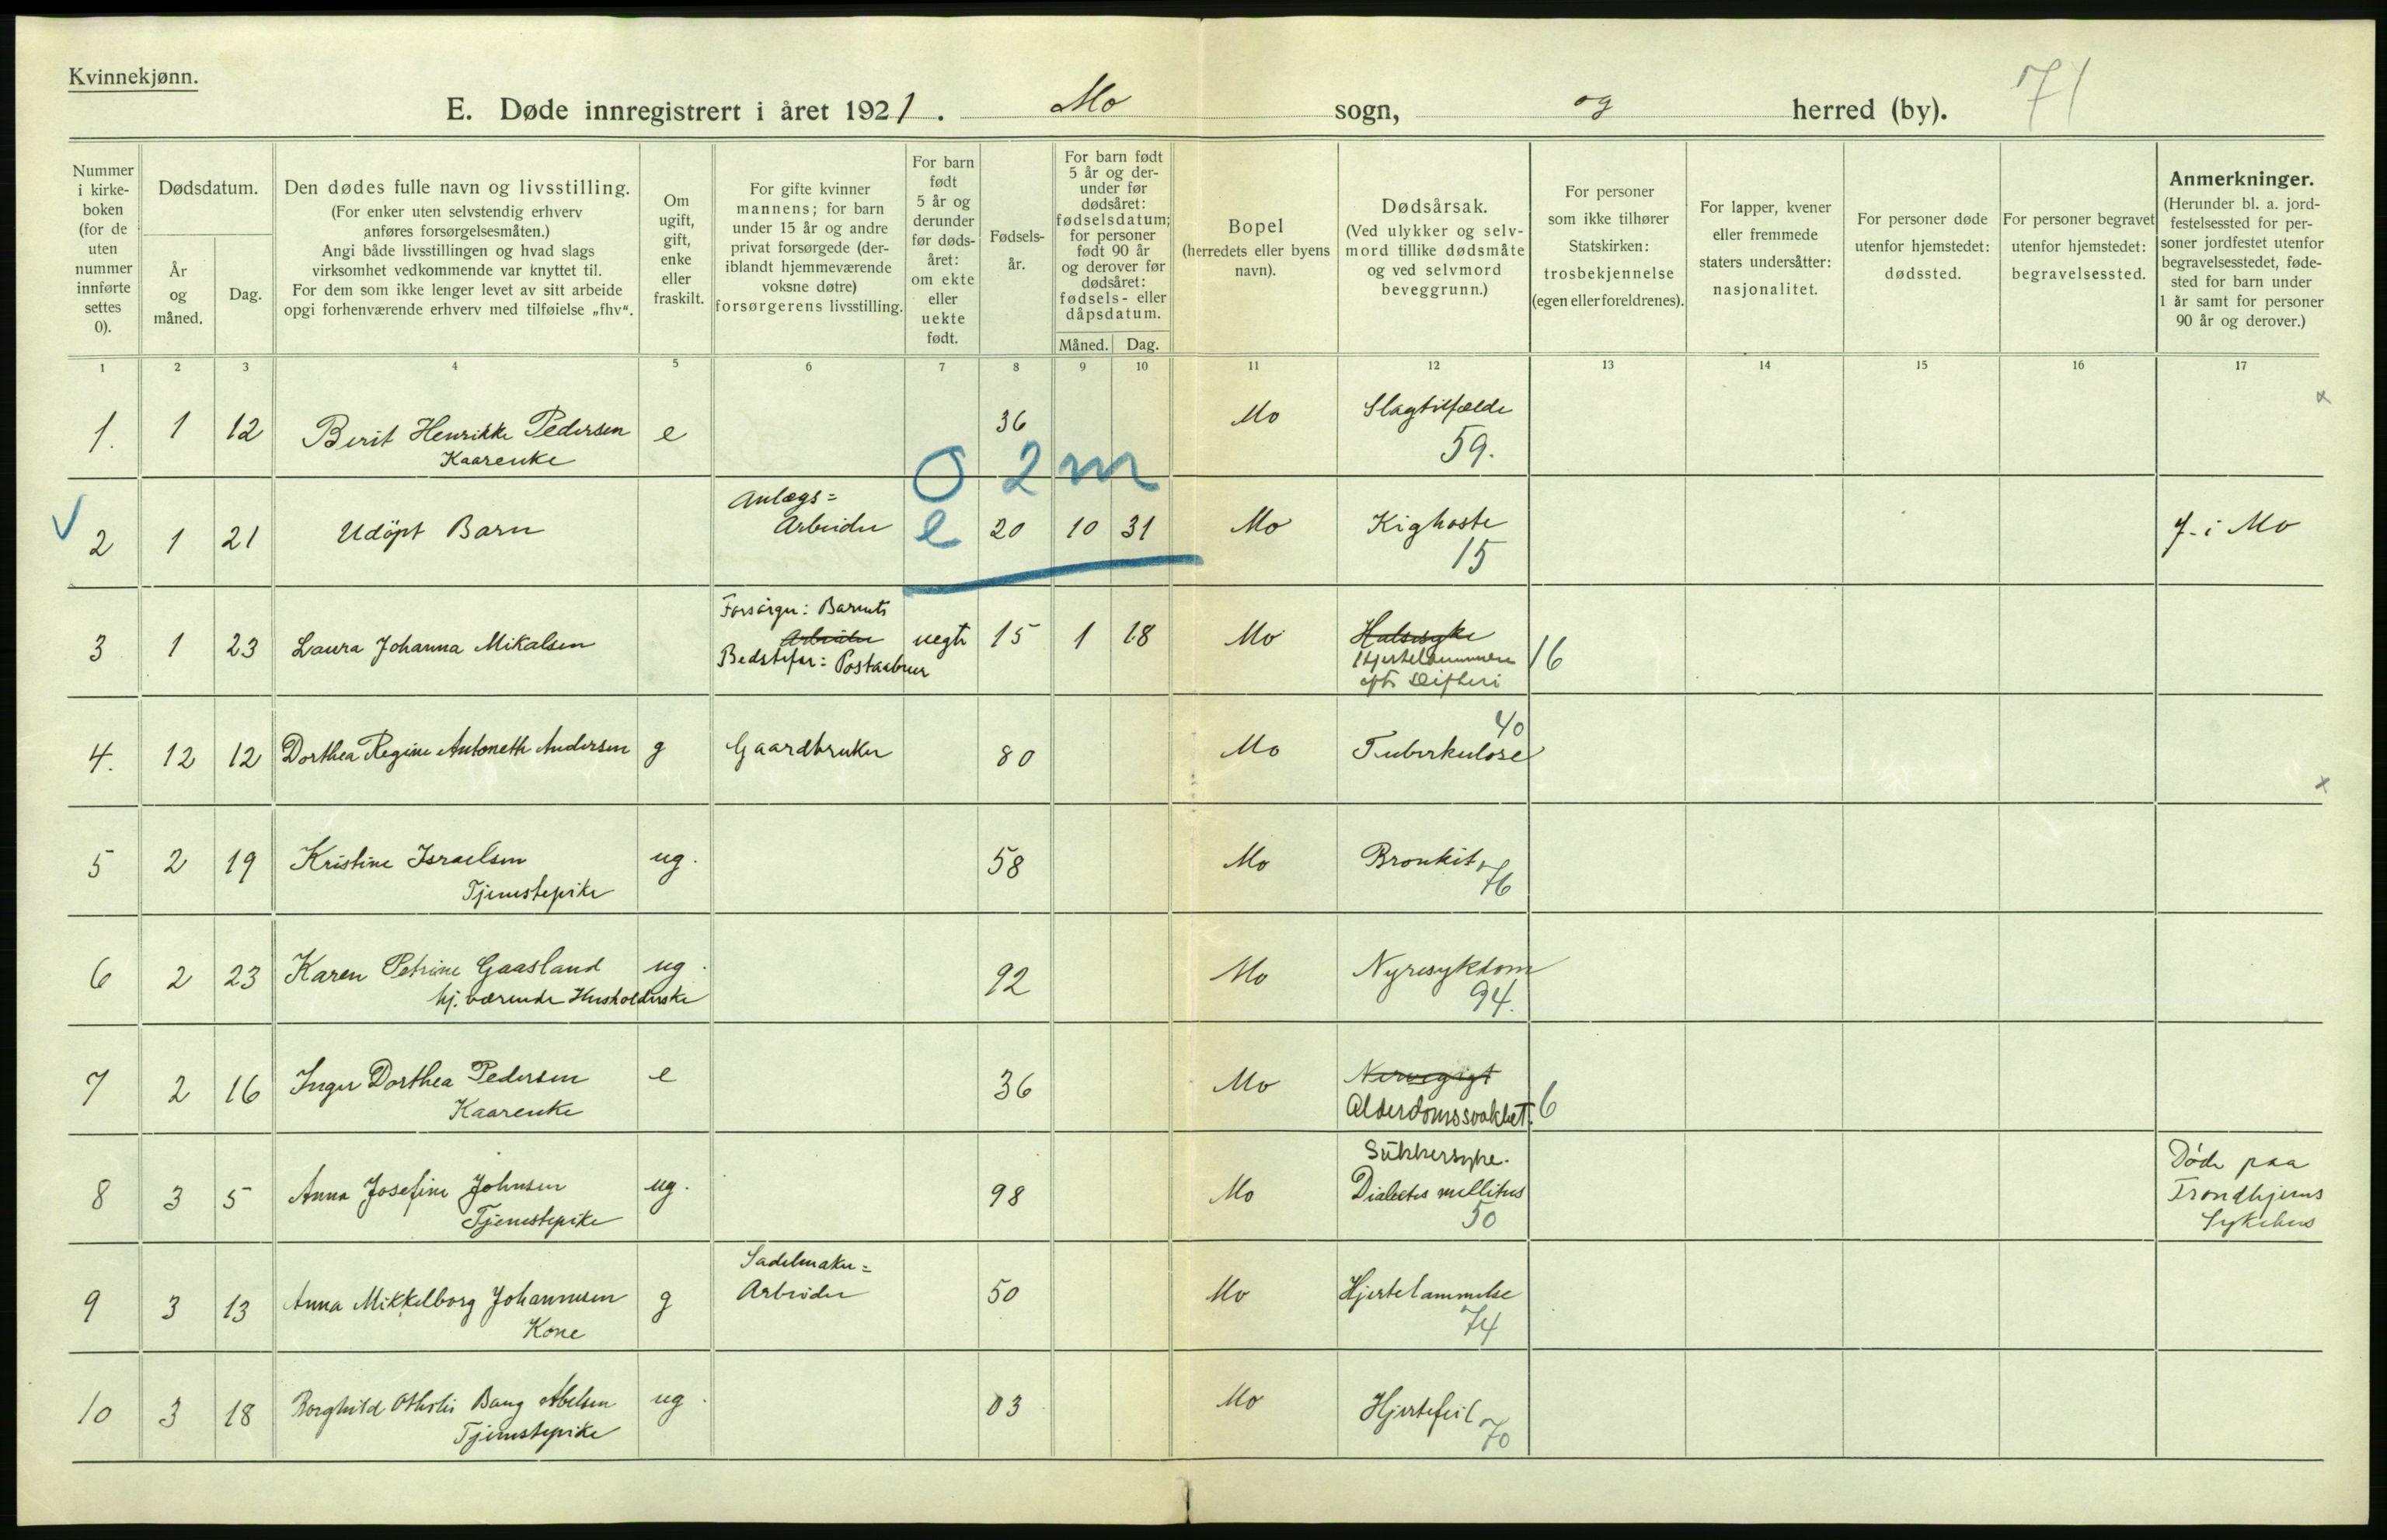 Kvinnekjønn.
71
E. Døde innregistrert i året 1921. Mo sogn, og herred (by).
Nummer i kirke- boken (for de uten nummer innførte settes 0).
Dødsdatum.
År og måned.
Dag.
Den dødes fulle navn og livsstilling.
(For enker uten selvstendig erhverv anføres forsørgelsesmåten.)
Angi både livsstillingen og hvad slags virksomhet vedkommende var knyttet til.
For dem som ikke lenger levet av sitt arbeide opgi forhenværende erhverv med tilføielse „fhv“.
Om ugift, gift, enke eller fraskilt.
For gifte kvinner mannens; for barn under 15 år og andre privat forsørgede (der- iblandt hjemmeværende voksne døtre) forsørgerens livsstilling.
For barn født 5 år og derunder før døds- året: om ekte eller uekte født.
Fødsels- år.
For barn født 5 år og der- under før dødsåret: fødselsdatum; for personer født 90 år og derover før dødsåret: fødsels- eller dåpsdatum.
Måned. Dag.
Bopel (herredets eller byens navn).
Dødsårsak. (Ved ulykker og selv- mord tillike dødsmåte og ved selvmord beveggrunn.)
For personer som ikke tilhører Statskirken: trosbekjennelse (egen eller foreldrenes).
For lapper, kvener eller fremmede staters undersåtter: nasjonalitet.
For personer døde utenfor hjemstedet: dødssted.
For personer begravet utenfor hjemstedet: begravelsessted.
Anmerkninger. (Herunder bl. a. jord- festelsessted for per- soner jordfestet utenfor begravelsesstedet, føde- sted for barn under 1 år samt for personer 90 år og derover.)
1 2 3 4 5 6 7 8 9 10 11 12 13 14 15 16 17
1. 1 12 Berit Henrikke Pedersen e 36 Mo Slagtilfælde x
Kaarenke 59.
0 2m
✓ 2 1 21 Udöpt Barn Anlægs= Arbeider e 20 10 31 Mo Kighoste f. i Mo
15
3 1 23 Laura Johanna Mikalsen Forsörger: Barnets Arbeider uegte 15 1 18 Mo Halssyke
Bedstefar: Postaabner Hjertelammelse 16
efter Difteri
40
4. 12 12 Dorthea Regine Antonette Andersen g Gaardbruker 80 Mo Tuberkulose x
5 2 19 Kristine Israelsen ug. 58 Mo Bronkit
Tjenestepike 76
6 2 23 Karen Petrine Gaasland ug. 92 Mo Nyresykdom
hj. værende Husholderske 94.
7 2 16 Inger Dorthea Pedersen e 36 Mo Nervegigt
Kaarenke Alderdomssvakhet. 6
Sukkersyke.
8 3 5 Anna Josefine Johnsen ug. 98 Mo Diabetes mellitus Døde paa
Tjenestepike 50 Trondhjems Sykehus
9 3 13 Anna Mikkelborg Johannesen g Sadelmaker= Arbeider 50 Mo Hjertelammelse
Kone 74
10 3 18 Borghild Bang Abelsen ug. 03 Mo Hjertefeil
Tjenestepike 70